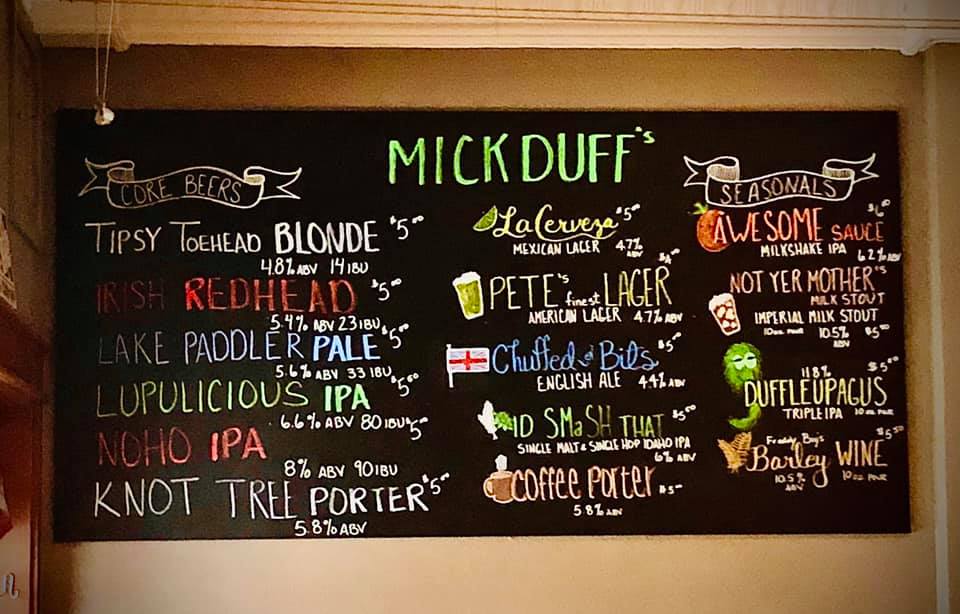 MICKDUFF's
CORE BEERS
TIPSY TOEHEAD BLONDE $5.00
4.8% ABV 14 IBU
IRISH REDHEAD $5.00
5.4% ABV 23 IBU
LAKE PADDLER PALE $5.00
5.6% ABV 33 IBU
LUPULICIOUS IPA $5.00
6.6% ABV 80 IBU
NOHO IPA $5.00
8% ABV 90 IBU
KNOT TREE PORTER $5.00
5.8% ABV
La Cerveza $5.00
MEXICAN LAGER 4.7% ABV
PETE's finest LAGER
AMERICAN LAGER 4.7% ABV
Chuffed to Bits $5.00
ENGLISH ALE 4.4% ABV
ID SMaSH THAT $5.00
SINGLE MALT & SINGLE HOP IDAHO IPA
6% ABV
COFFEE PORTER $5-
5.8% ABV
SEASONALS
AWESOME SAUCE $6.00
MILKSHAKE IPA 6.2% ABV
NOT YER MOTHER'S
MILK STOUT
IMPERIAL MILK STOUT
10oz POUR 10.5% ABV $5.50
11.8% $5.50
DUFFLEUPAGUS
TRIPLE IPA 10 oz POUR
Barley WINE $5.50
10.5% ABV 10 oz POUR